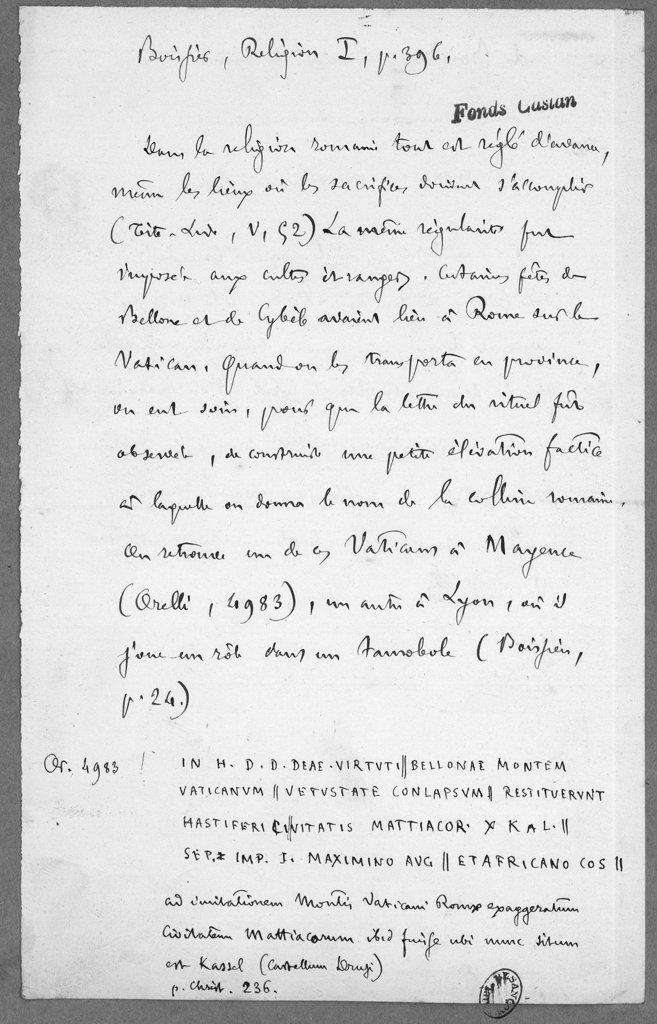 Boissier, Religion I, p. 396.
Fonds Castan
Dans la religion romaine tout est réglé d'avance,
même les lieux où les sacrifices doivent s'accomplir
(Tite-Live, V, 52) La même régularité fut
imposée aux cultes étrangers. Certaines fêtes de
Bellone et de Cybèle avaient lieu à Rome sur le
Vatican. Quand on les transporta en province,
on eut soin, pour que la lettre du rituel fût
observée, de construire une petite élévation factice
à laquelle on donna le nom de la colline romaine.
On retrouve un de ces Vaticans à Mayence
(Orelli, 4983), un autre à Lyon, où il
joue un rôle dans un taurobole (Boissieu,
p. 24.)
Or. 4983 IN H. D. D. DEAE. VIRTVTI || BELLONAE MONTEM
VATICANVM || VETUSTATE CONLAPSVM || RESTITUERVNT
HASTIFERI CIVITATIS MATTIACOR. X KAL. ||
SEP. IMP. I. MAXIMINO AUG || ET AFRICANO COS ||
ad imitationem Montis Vaticani Romæ exaggeratum
Civitatem Mattiacorum ibid fuisse ubi nunc situm
est Kassel (Castellum Drusi)
p. Christ. 236.